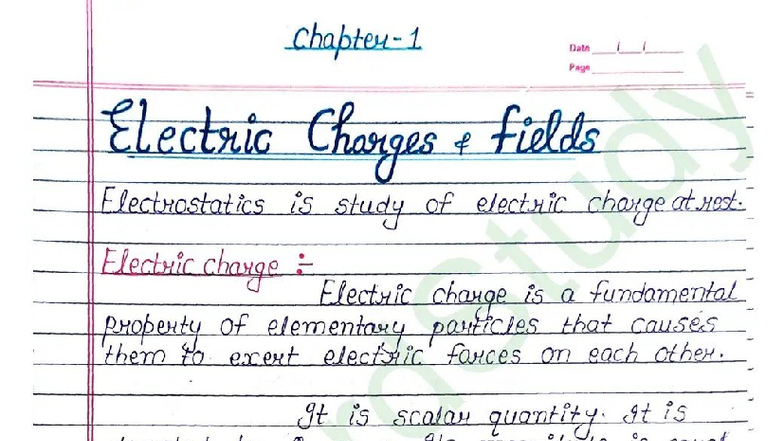 Chapter-1
Date / /
Page
Electric Charges & fields
Electrostatics is study of electric charge at rest.
Electric charge :-
Electric charge is a fundamental
property of elementary particles that causes
them to exert electric forces on each other.
It is scalar quantity. It is